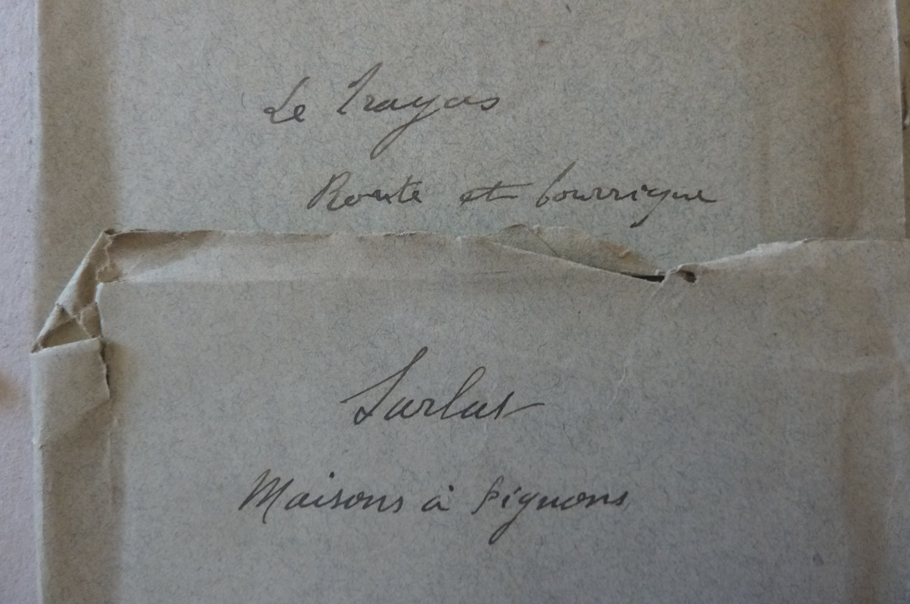 Le Trayas
Route et bourrique
Sarlat
Maisons à pignons